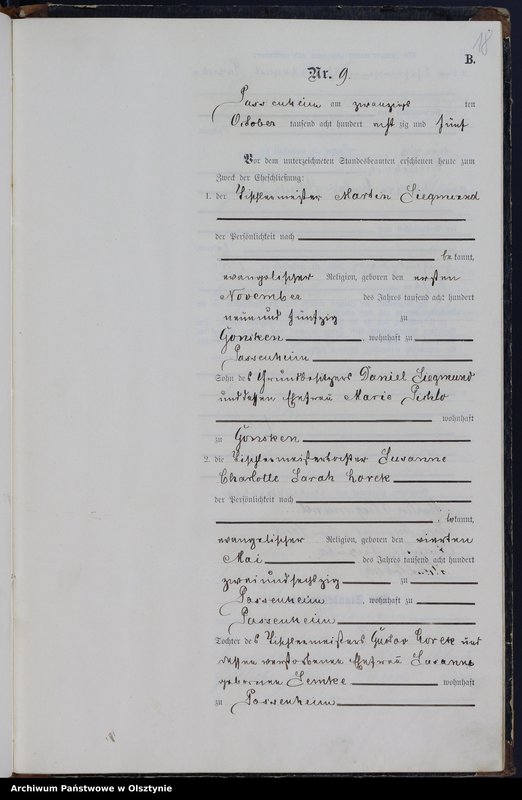 18
B.
Nr. 9.
Passenheim am zwanzigs ten
October tausend acht hundert acht zig und fünf
Vor dem unterzeichneten Standesbeamten erschienen heute zum
Zweck der Eheschließung:
1. der Tischlermeister Martin Siegmund
der Persönlichkeit nach
be kannt,
evangelischer Religion, geboren den ersten
November des Jahres tausend acht hundert
neun und fünfzig zu
Gonsken, wohnhaft zu
Passenheim
Sohn des Grundbesitzers Daniel Siegmund
und dessen Ehefrau Marie
wohnhaft
zu Gonsken
2. die Tischlermeistertochter Susanne
Charlotte Sarah Lorek
der Persönlichkeit nach
bekannt,
evangelischer Religion, geboren den vierten
Mai des Jahres tausend acht hundert
zwei und sechszig zu
Passenheim, wohnhaft zu
Passenheim
Tochter des Tischlermeisters Gustav Lorek und
dessen verstorbenen Ehefrau Susanne
geborenen Lemke wohnhaft
zu Passenheim
Archiwum Państwowe w Olsztynie